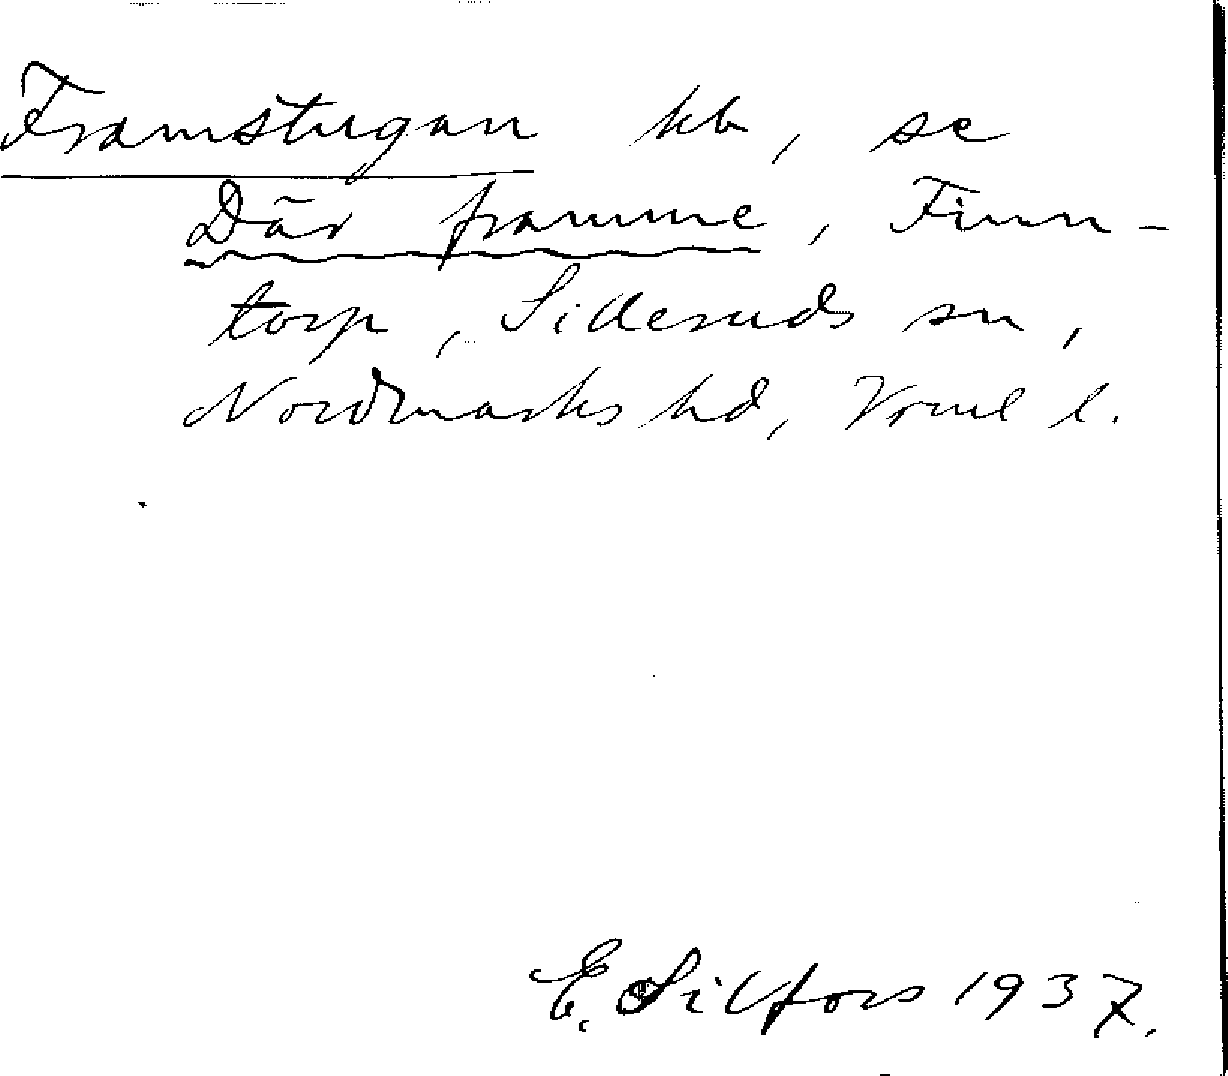 Framstugan hb, se
Där framme, Finn-
torp, Silleruds sn,
Nordmarks hd, Vrml l.
E. Silfors 1937.